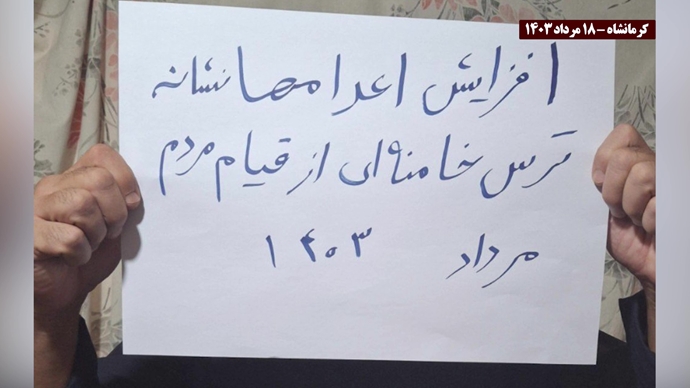 کرمانشاه – ۱۸ مرداد ۱۴۰۳
افزایش اعدامها نشانه
ترس خامنه‌ای از قیام مردم
مرداد ۱۴۰۳